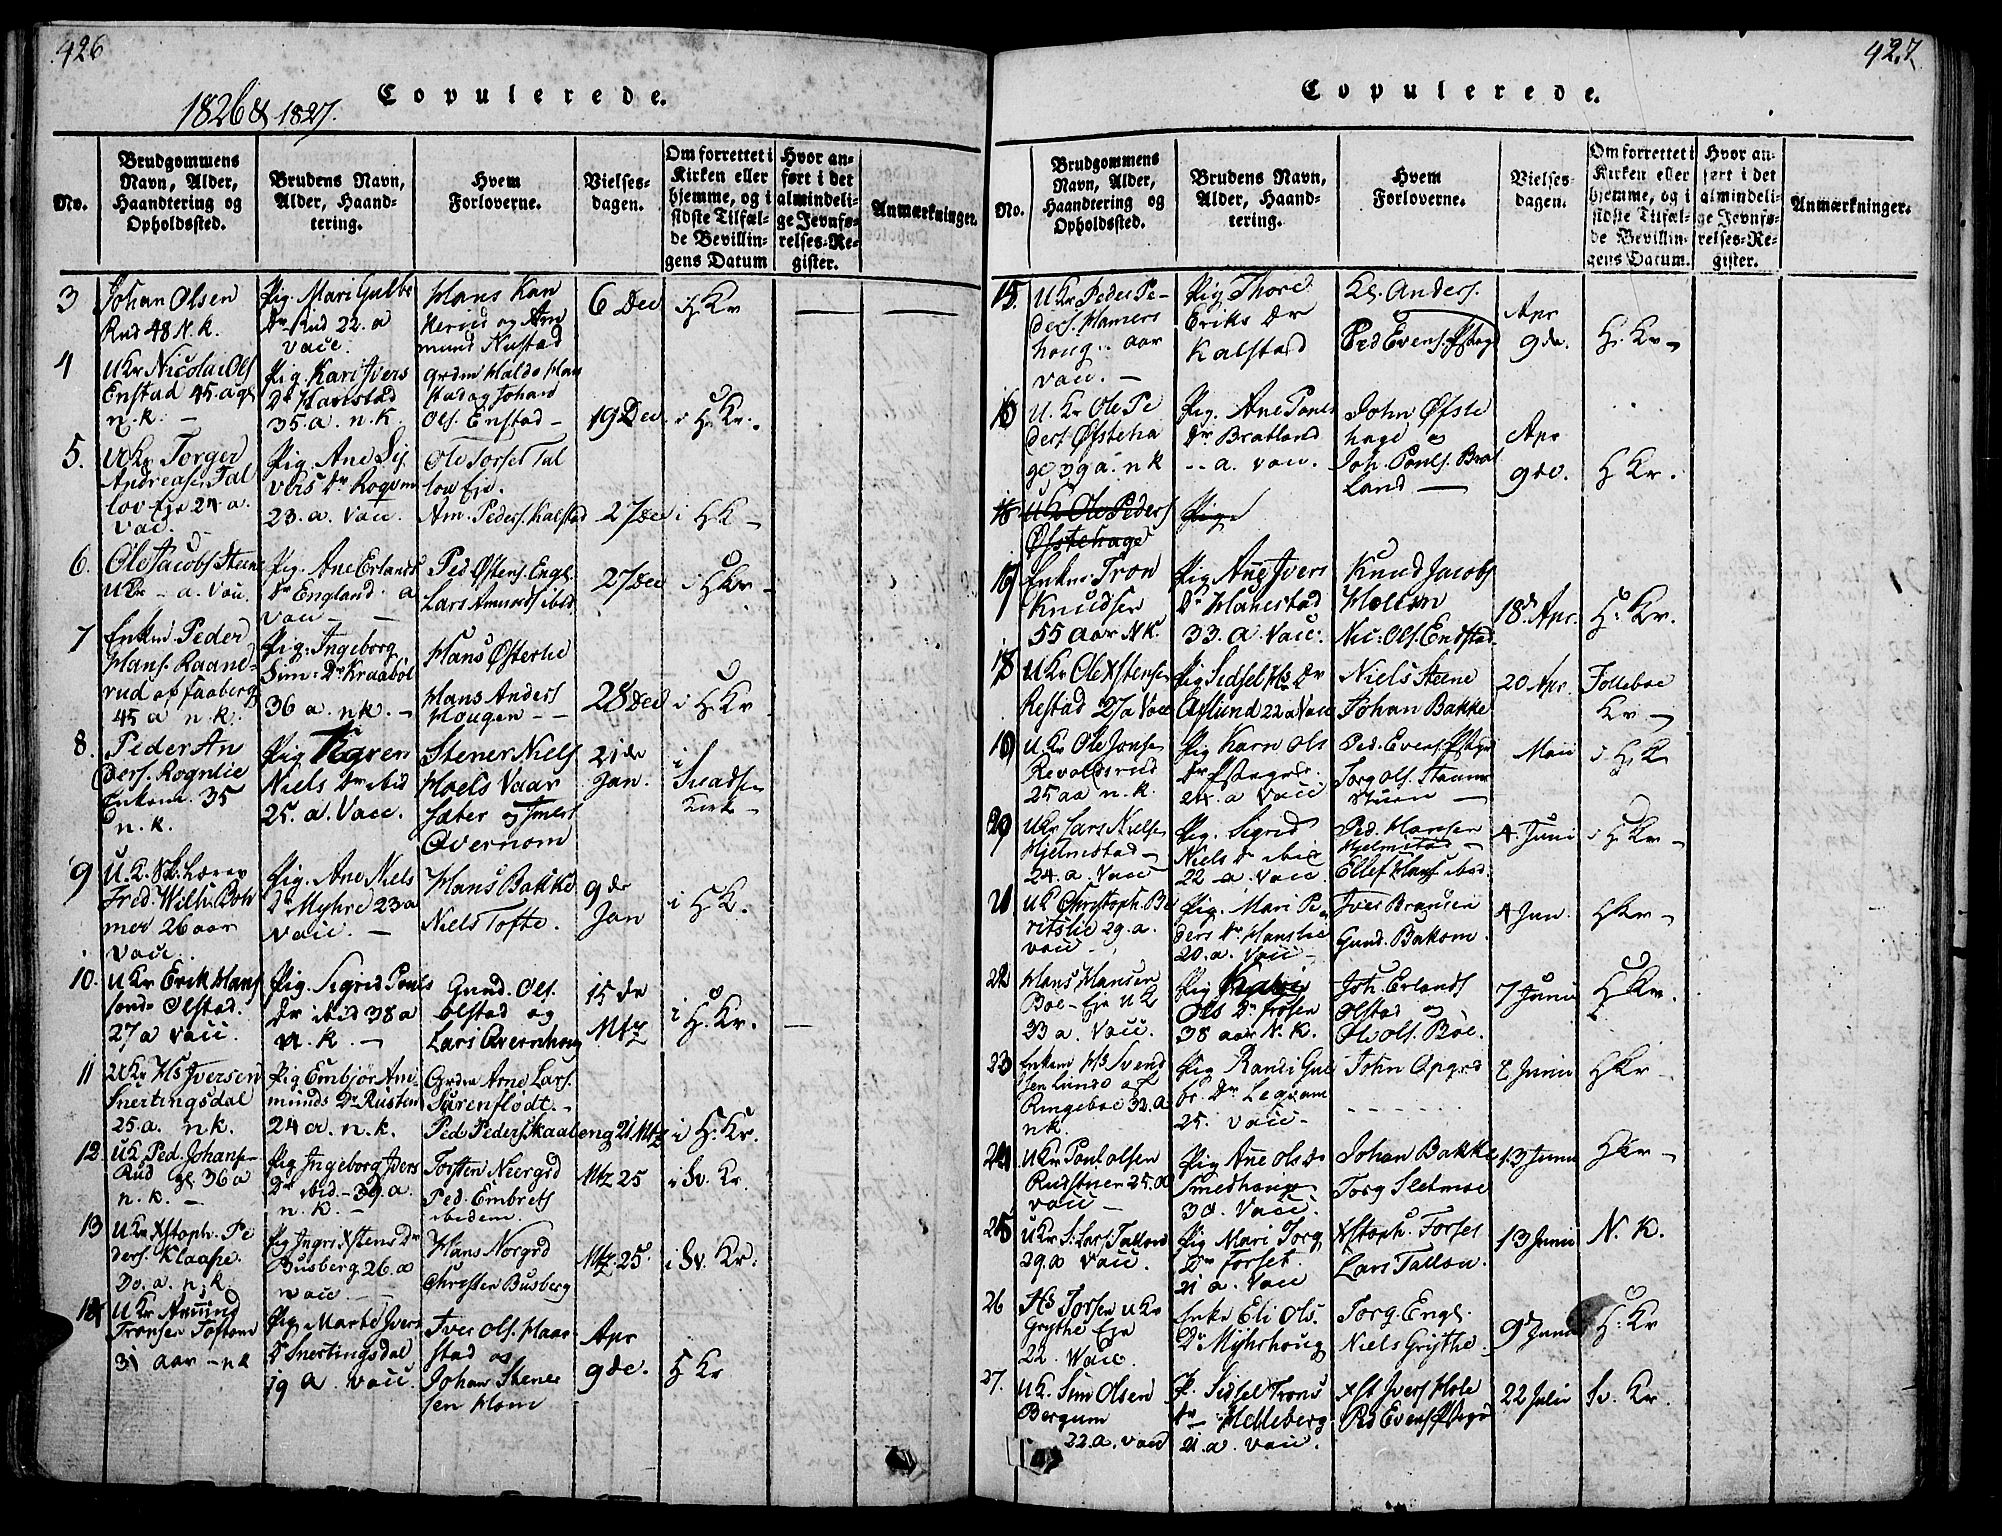 426
1826 & 1827.
Copulerede.
No.
Brudgommens
Navn, Alder,
Haandtering og
Opholdssted.
Brudens Navn,
Alder, Haand-
tering.
Hvem
Forloverne.
Vielses-
dagen.
Om forrettet i
Kirken eller
hjemme, og i
sidste Tilfæl-
de Bevillin-
gens Datum
Hvor an-
ført i det
almindeli-
ge Jevnfø-
relses-Re-
gister.
Anmærkninger.
3
Johan Olsen
Rud 48 N. k.
Pig. Mari Gulbr
Dr Rud 22. a
vacc.
Hans Kan
kerud og Am
mund Nustad
6 Dec
i H Kr
4
U Kr Nicolai Ols
Enstad 45. a gl
n. k. —
Pig. Kari Ivers
Dr Hanestad
35. a. n. k.
Ols. Enstad —
19 Dec.
i H. Kr.
5.
U Kr Torger
Andreasen Tal
lov Eje 24 a.
vac.
Pig. Ane Sis
vers Dr Rogum
23. a. Vacc.
Ole Torset Tal
lov Eje.
Am. Peders. Kalstad
27 Dec
i H K —
6.
Ole Jacobs Steene
U Kr — a. Vacc.
Pig. Ane Erlands
Dr England. a
vacc —
Ped. Østens. Engl.
Lars Amunds ibid
27 Dec
i H Kr —
7
Enkm. Peder
Hans. Raane-
rud af Faaberg
45 a n. k.
Pig. Ingeborg
Sim: Dr Kraabøl
36 a. n k. —
Hans Østerlie
Hans Anders
Hougen — —
28 Dec
i H Kr
8.
Peder An
ders. Rognlie
Enkem. 35
n. k.
Pig Karen
Niels Dr ibid
25. a. Vacc.
Stener Niels
Hoels Vaar
Sæter og
Overnom
21 de
Jan.
i
Svadsu
Kirk —
9
U. K. Sk. Lærer
Fred. Wilh. Boh
mer 26 aar
vacc.
Pig. Ane Niels
Dr Myhre 23 a
vacc. —
Hans Bakke
Niels Tofte.
9 de
Jan
i H K.
10.
U Kr Erik Hans
sen Olstad.
27 a vacc.
Pig. Sigrid Pouls
Dr ibid 38 a
n. k. —
Gund. Ols.
Olstad og
Lars Overnhoug
15 de
Mtz
i H. Kr.
11
U Kr Hs Iversen
Snertingsdal
25. a. n k.
Pig Embjør Ane-
munds Dr Rusten
24 a. n. k.
Grdm Arne Lars.
Surenflødt. —
Ped. Peders. Kaaleng
21 Mtz
i H. Kr.
12.
U K Ped. Johans —
Rud gl 36 a
n. k. —
Pig Ingeborg Ivers
Dr ibid — 39. a.
n. k. —
Torsten Neergrd
Ped. Embrets
ibidem.
Mtz 25
i Sv. Kr.
13
U Kr Xstoph. Pe
ders. Klaape.
Do. a. n. k.
Pig Ingri Xstens Dr
Busberg 26. a
vacc. —
Hans Norgrd
Christen Busberg
Mtz. 25.
i Sv. Kr.
14
U Kr Amund
Tronsen Toftom
31 aar — n k
Pig Marte Ivers
Dr Snertingsdal
19 a. vacc.
Iver Ols. Haar
stad og
Johan Stene
sen Hom
Apr
9 de.
H Kr
427.
Copulerede.
No.
Brudgommens
Navn, Alder,
Haandtering og
Opholdssted.
Brudens Navn,
Alder, Haand-
tering.
Hvem
Forloverne.
Vielses-
dagen.
Om forrettet i
Kirken eller
hjemme, og i
sidste Tilfæl-
de Bevillin-
gens Datum.
Hvor an-
ført i det
almindeli-
ge Jevnfø-
relses-Re-
gister.
Anmærkninger.
15.
U Kr Peder Pe-
ders. Hamers
houg .. aar
vacc. —
Pig Thore
Eriks Dr
Kalstad
Kl. Anders.
Ped Evens.
Apr
9 de.
H. Kr —
16
U. Kr Ole Pe
ders. Øfsteha
ge, 39 a. n k
Pig. Ane Pouls
Dr Bratland
-- a. vacc.
John Øfste
hage og
Joh. Pouls. Brat
land —
Apr
9 de.
H Kr.
U Kr Ole Peders
Øfstehage
Pige
Enkm Tron
Knudsen
55 aar N K.
Pig Ane Ivers
Dr Hanestad
33. a Vacc.
Knud Jacobs
Nic. Ols. Endstad
18 Apr.
H. Kr.
18
U Kr Ole Xstensen
Restad 27 a Vacc
Pig Sidsel Hs Dr
Aslund 22 a Vacc
Niels Steene
Johan Bakke
20 Apr.
Folleboe
Kr —
19
U Kr Ole Jonsen
Revoldsrud
25 aa n. k.
Pig Karn Ols
24. a Vacc
Ped. Evens.
Torg Ols.
Maii
i H. K
20
U Kr Lars Nielsen
Hjelmstad —
24. a. Vacc
Pig. Sigrid
Niels Dr ibid
22 a. vacc
Ped. Hansen
Hjelmstad —
Ellef Hans. ibid.
4 Juni
i H Kr —
21
U K Christoph. Be
ritslie 29. a.
vacc
Pig. Mari Pe
ders Dr Hanslie
20. a. Vacc —
Iver Bransen
Gund. Bakom.
4 Jun.
H Kr —
22
Hans Hansen
Boe — Eje U K
33 a. Vacc.
Pig Kari
Ols Dr
38 aar N. k.
Joh. Erlands
Olstad og
Ole Ols. Bøe.
7 Junii
H Kr.
23
Enkem Hs Svend
sen Lunde af
Ringeboe 32. a
nk.
Pig Randi Gul
br. Dr Legvam
25. Vacc —
John Opgrd
8 Junii
H Kr —
24
U Kr Poul Olsen
Rudstuen 25. a
vacc —
Pig Ane Ols Dr
Smedhaugen
30. Vacc.
Johan Bakke
Torg Sletmoe
13 Junii
H Kr —
25
U Kr S. Lars. Tallov
29. a Vacc.
Pig Mari Torg
Dr Torset.
21 a. Vacc
Xstoph. Torset
Lars Tallov.
13 Junii
N. K.
26
Hs Torsen U Kr
Grythe Eje
22. Vacc.
Enke Eli Ols.
Dr Myhrhoug
Torg. Engl.
Niels Grythe.
9 Junii
H. Kr
27.
U K. Sim Olsen
Bergum
22. a. vacc
P. Sidsel Trons
Dr Helleberg
21. a. vacc.
Xst Ivers Hole
Ped Evens
22 Julii
Sv. Kr.